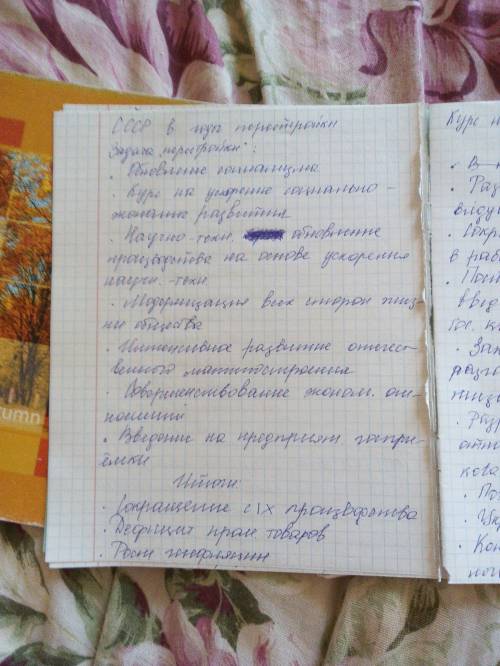 СССР в годы перестройки
Задача "перестройки":
· Обновление социализма
· Курс на ускорение социально-
эконом развития
· Научно-техн. обновление
производства на основе ускорения
научн.-техн
· Модернизация всех сторон жиз
ни общества
· Интенсивное развитие отечест-
венного машиностроения
· Совершенствование эконом. от-
ношений
· Введение на предприят госпри-
ёмки
Итоги:
· Сокращение с/х производства
· Дефицит пром товаров
· Рост инфляции
Курс н
· В
· Раз
· Сокра
в раб
· Пост
введ
гос. к
· Зак
· Разр
отно
кова
· По
· Укр
· Кон
utumn